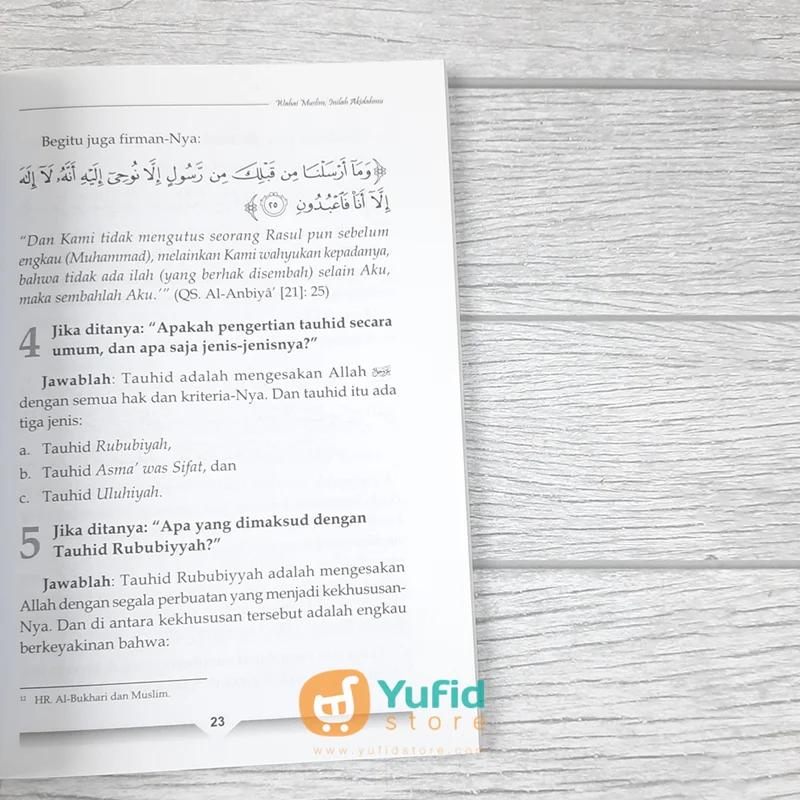 Wahai Muslim, Inilah Akidahmu
Begitu juga firman-Nya:
﴿وَمَآ أَرْسَلْنَا مِن قَبْلِكَ مِن رَّسُولٍ إِلَّا نُوحِيٓ إِلَيْهِ أَنَّهُۥ لَآ إِلَٰهَ
إِلَّآ أَنَا۠ فَٱعْبُدُونِ ٢٥﴾
“Dan Kami tidak mengutus seorang Rasul pun sebelum
engkau (Muhammad), melainkan Kami wahyukan kepadanya,
bahwa tidak ada ilah (yang berhak disembah) selain Aku,
maka sembahlah Aku.’” (QS. Al-Anbiyâ’ [21]: 25)
4 Jika ditanya: “Apakah pengertian tauhid secara
umum, dan apa saja jenis-jenisnya?”
Jawablah: Tauhid adalah mengesakan Allah
dengan semua hak dan kriteria-Nya. Dan tauhid itu ada
tiga jenis:
a. Tauhid Rububiyah,
b. Tauhid Asma’ was Sifat, dan
c. Tauhid Uluhiyah.
5 Jika ditanya: “Apa yang dimaksud dengan
Tauhid Rububiyyah?”
Jawablah: Tauhid Rububiyyah adalah mengesakan
Allah dengan segala perbuatan yang menjadi kekhususan-
Nya. Dan di antara kekhususan tersebut adalah engkau
berkeyakinan bahwa:
12 HR. Al-Bukhari dan Muslim.
23
Yufid
store
www.yufidstore.com